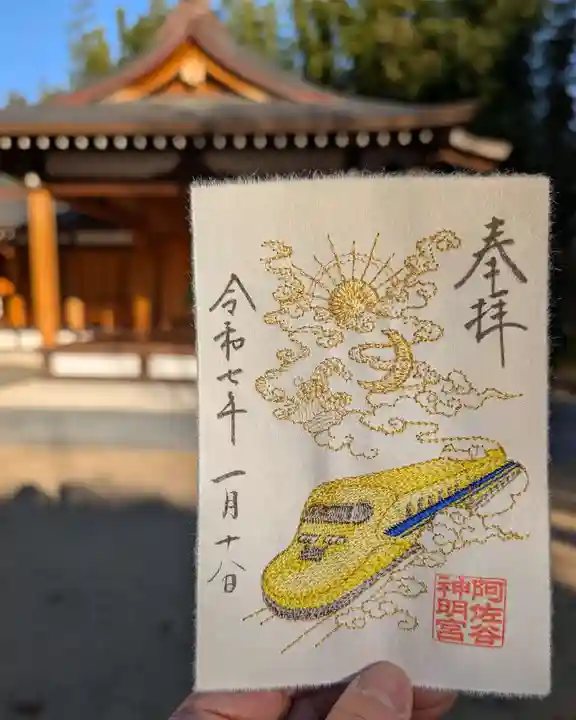 奉拝
令和七年 一月十八日
阿佐谷
神明宮